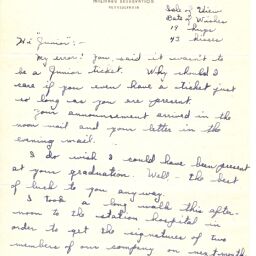 MILITARY RESERVATION
PENNSYLVANIA
Isle of View
Bale of Wishes
19 hugs
43 kisses
Hi "Junior":-
My error! You said it wasn't to
be a Junior ticket. Why should I
care if you even have a ticket just
so long as you are present.
Your announcement arrived in the
noon mail and your letter in the
evening mail.
I do wish I could have been present
at your graduation. Well - the best
of luck to you anyway.
I took a long walk this after-
noon to the station hospital in
order to get the signatures of two
members of our company on next month